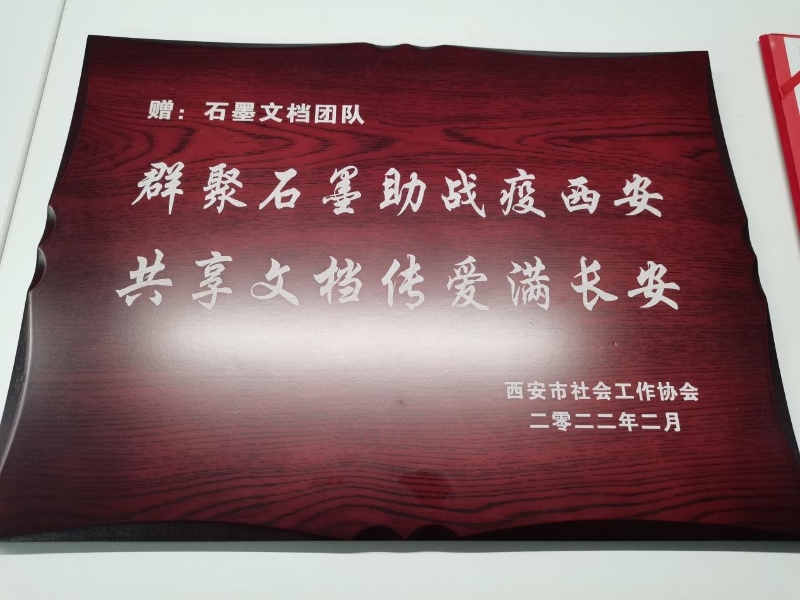 赠：石墨文档团队
群聚石墨助战疫西安
共享文档传爱满长安
西安市社会工作协会
二零二二年二月